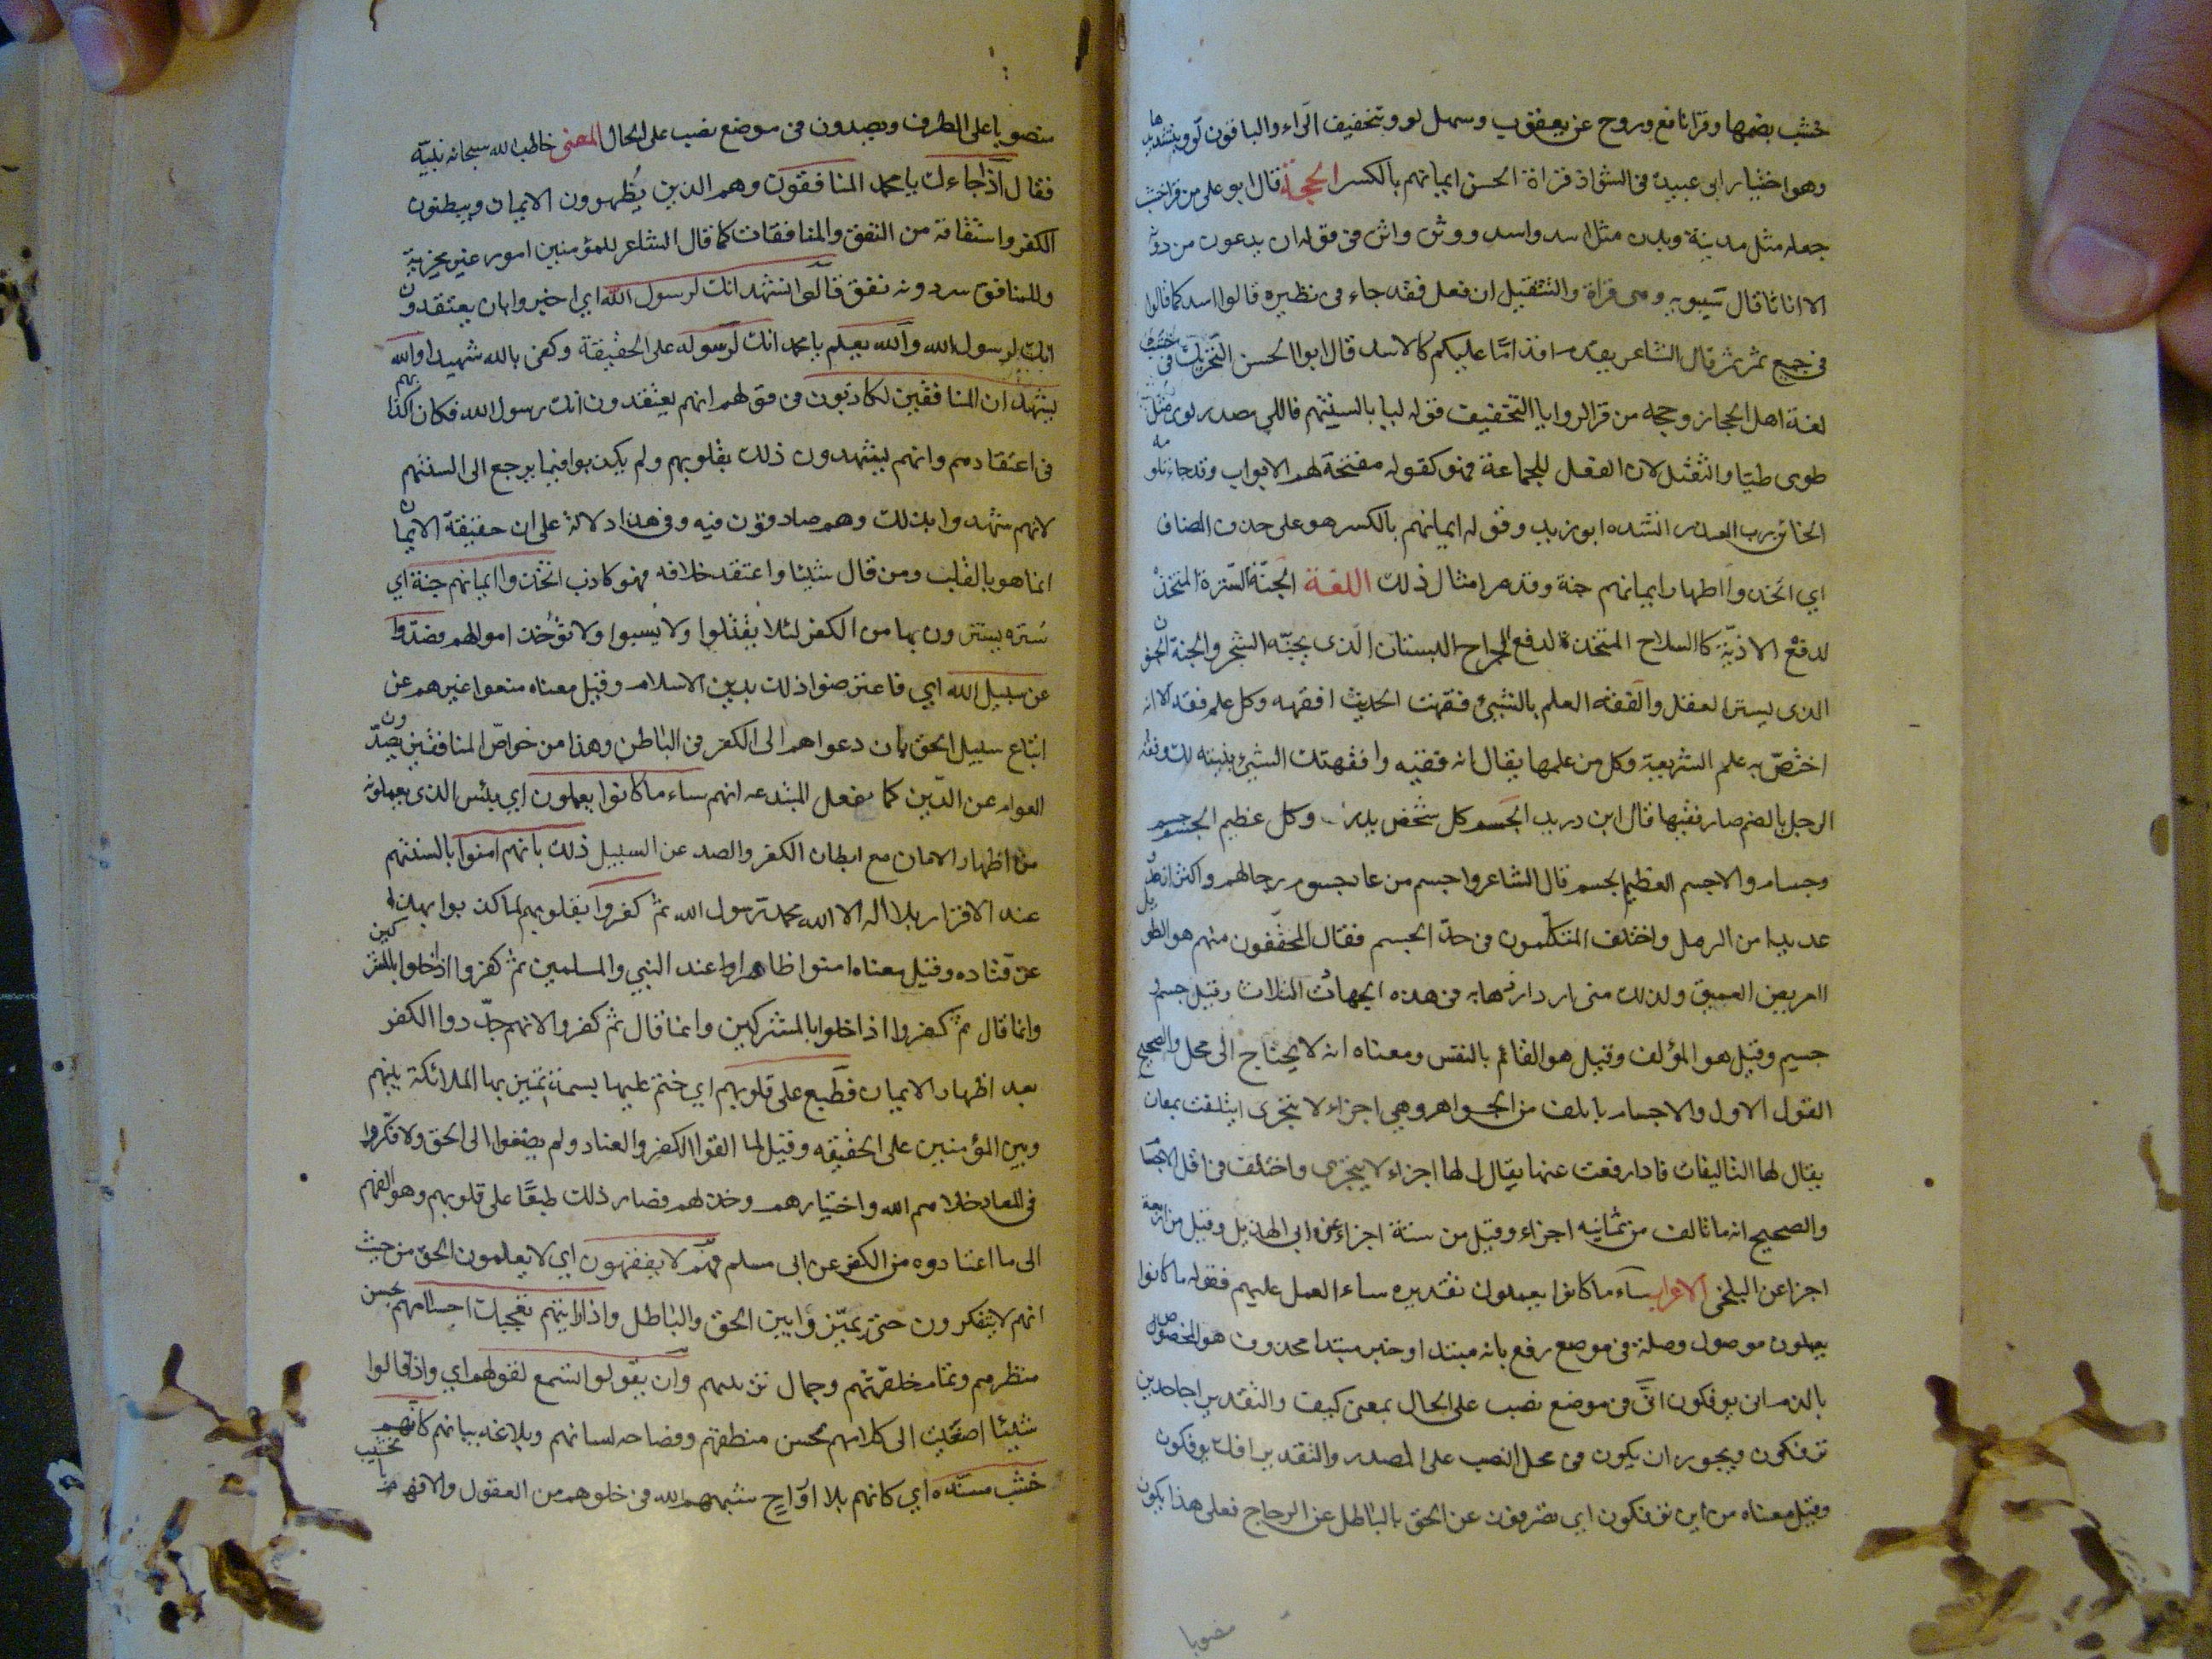 خشب بضمها وقرا نافع وروح عن يعقوب وسهل لووا بتخفيف الواو والباقون لووا بتشديدها
وهو اختيار ابى عبيدة فى الشواذ قراة الحسن ايمانهم بالكسر الحجة قال ابو على من قرا خشب
جعله مثل بدنة وبدن مثل اسد واسد ووثن واثن فى قوله ان يدعون من دونه
الا اناثا قال سيبويه وهى قراة والتثقيل ان فعل فقد جاء فى نظيره قالوا اسد كما قالوا
فى جمع ثمر ثمر قال الشاعر يقدم اقداما عليكم كالاسد قال ابو الحسن التحريك فى خشب
لغة اهل الحجاز وحجة من قرا لووا بالتخفيف قوله ليا بالسنتهم فاللي مصدر لوى مثل
طوى طيا والتثقيل لان الفعل للجماعة فهو كقوله مفتحة لهم الابواب وقد جاء تلويه
الخاتن رب انشده ابو زيد وقوله ايمانهم بالكسر هو على حذف المضاف
اي اتخذوا اظهار ايمانهم جنة وقد مر امثال ذلك اللغة الجنة السترة المتخذة
لدفع الاذية كالسلاح المتخذة لدفع الجراح البستان الذى يجنه الشجر والجنة الجنون
الذى يستر العقل والفقه العلم بالشيئ فقهت الحديث افقهه وكل علم فقه الا انه
اختص به علم الشريعة وكل من علمها يقال انه فقيه وافقهتك الشيئ بينته لك وفقه
الرجل بالضم صار فقيها قال ابن دريد الجسم كل شخص يدرك وكل عظيم الجسم جسيم
وجسام والاجسم العظيم الجسم قال الشاعر واجسم من عاد جسوم رجالهم واكثر ان عدوا
عديدا من الرمل واختلف المتكلمون فى حد الجسم فقال المحققون منهم هو الطويل
العريض العميق ولذلك متى ازداد ذهابه فى هذه الجهات الثلاث وقيل جسم
جسيم وقيل هو المؤلف وقيل هو القائم بالنفس ومعناه انه لا يحتاج الى محل والصحيح
القول الاول والاجسام يأتلف من الجواهر وهي اجزاء لا يتجزى ايتلفت بمعان
يقال لها التاليفات فاذا رفعت عنها يقال لها اجزاء لا يتجزى واختلف فى اقل الاجسام
والصحيح انه ما تالف من ثمانيه اجزاء وقيل من ستة اجزاء عن ابى الهذيل وقيل من اربعة
اجزا عن البلخى الاعراب ساء ما كانوا يعملون تقديره ساء العمل عليهم فقوله ما كانوا
يعملون موصول وصلة فى موضع رفع بانه مبتدا او خبر مبتدا محذوف هو المخصوص
بالذم انى يوفكون انى فى موضع نصب على الحال بمعنى كيف والتقدير اجاحدين
توفكون ويجوز ان يكون فى محل النصب على المصدر والتقدير اي افك يوفكون
وقيل معناه من اين توفكون اي تصرفون عن الحق بالباطل عن الزجاج فعلى هذا يكون
منصوبا
منصوبا على الظرف ويصدون فى موضع نصب على الحال المعنى خاطب الله سبحانه نبيه
فقال اذا جاءك يا محمد المنافقون وهم الذين يظهرون الايمان ويبطنون
الكفر واشتقاقه من النفق والمنافقات كما قال الشاعر للمؤمنين امور غير مخزية
وللمنافق سر دونه نفق قالوا نشهد انك لرسول الله اي اخبروا بان يعتقدون
انك لرسول الله والله يعلم يا محمد انك لرسوله على الحقيقة وكفى بالله شهيدا والله
يشهد ان المنافقين لكاذبون فى قولهم انهم يعتقدون انك رسول الله فكان اكذابهم
فى اعتقادهم وانهم يشهدون ذلك بقلوبهم ولم يكذبوا فيما يرجع الى السنتهم
لانهم شهدوا بذلك وهم صادقون فيه وفى هذا دلالة على ان حقيقة الايمان
انما هو بالقلب ومن قال شيئا واعتقد خلافه فهو كاذب اتخذوا ايمانهم جنة اي
ستره يستترون بها من الكفر لئلا يقتلوا ولا يسبوا ولا توخذ اموالهم فصدوا
عن سبيل الله اي فاعترضوا ذلك بدين الاسلام وقيل معناه منعوا غيرهم عن
اتباع سبيل الحق بان دعواهم الى الكفر فى الباطن وهذا من خواص المنافقين يصدون
العوام عن الدين كما يفعل المبتدعه انهم ساء ما كانوا يعملون اي بئس الذى يعملونه
من اظهار الايمان مع ابطان الكفر والصد عن السبيل ذلك بانهم امنوا بالسنتهم
عند الاقرار بلا اله الا الله محمد رسول الله ثم كفروا بقلوبهم لما كذبوا بهذا
عن قتاده وقيل معناه امنوا ظاهرا عند النبي والمسلمين ثم كفروا اذا خلوا بالمشركين
وانما قال ثم كفروا اذا خلوا بالمشركين وانما قال ثم كفروا لانهم جددوا الكفر
بعد اظهار الايمان فطبع على قلوبهم اي ختم عليها بسمة تميز بها الملائكة بينهم
وبين المؤمنين على الحقيقه وقيل لما الفوا الكفر والعناد ولم يصغوا الى الحق ولا فكروا
فى المعاد خلاهم الله واختيارهم وخذلهم فصار ذلك طبعا على قلوبهم وهو الفهم
الى ما اعتادوه من الكفر عن ابى مسلم فهم لا يفقهون اي لا يعلمون الحق من حيث
انهم لا يتفكرون حتى يميزوا بين الحق والباطل واذا رايتهم تعجبك اجسامهم بحسن
منظرهم وتمام خلقتهم وجمال بزتهم وان يقولوا تسمع لقولهم اي واذا قالوا
شيئا اصغيت الى كلامهم لحسن منطقهم وفصاحه لسانهم وبلاغه بيانهم كانهم
خشب مسنده اي كانهم بلا ارواح شبههم الله فى خلوهم من العقول والافهام